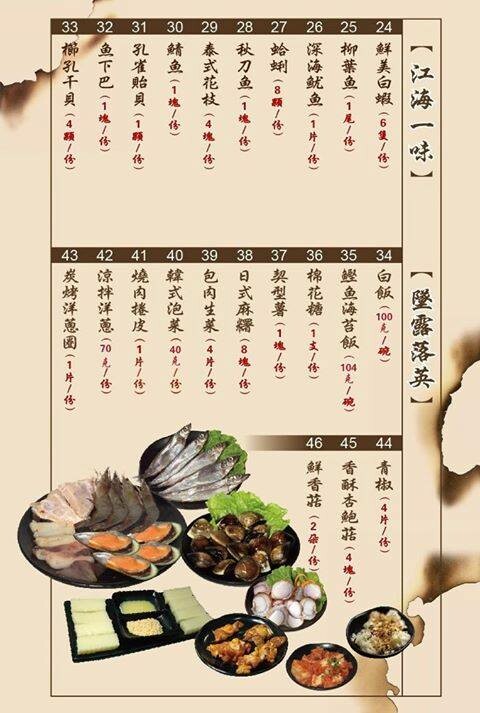 【江海一味】
24 鮮美白蝦(6隻/份)
25 柳葉魚(1尾/份)
26 深海魷魚(1片/份)
27 蛤蜊(8顆/份)
28 秋刀魚(1塊/份)
29 泰式花枝(4塊/份)
30 鯖魚(1塊/份)
31 孔雀貽貝(1顆/份)
32 魚下巴(1塊/份)
33 櫛孔干貝(4顆/份)
【墜露落英】
34 白飯(100克/碗)
35 鰹魚海苔飯(104克/碗)
36 棉花糖(1支/份)
37 契型薯(1塊/份)
38 日式麻糬(8塊/份)
39 包肉生菜(4片/份)
40 韓式泡菜(40克/份)
41 燒肉捲皮(1片/份)
42 涼拌洋蔥(70克/份)
43 炭烤洋蔥圈(1片/份)
44 青椒(4片/份)
45 香酥杏鮑菇(4塊/份)
46 鮮香菇(2朵/份)